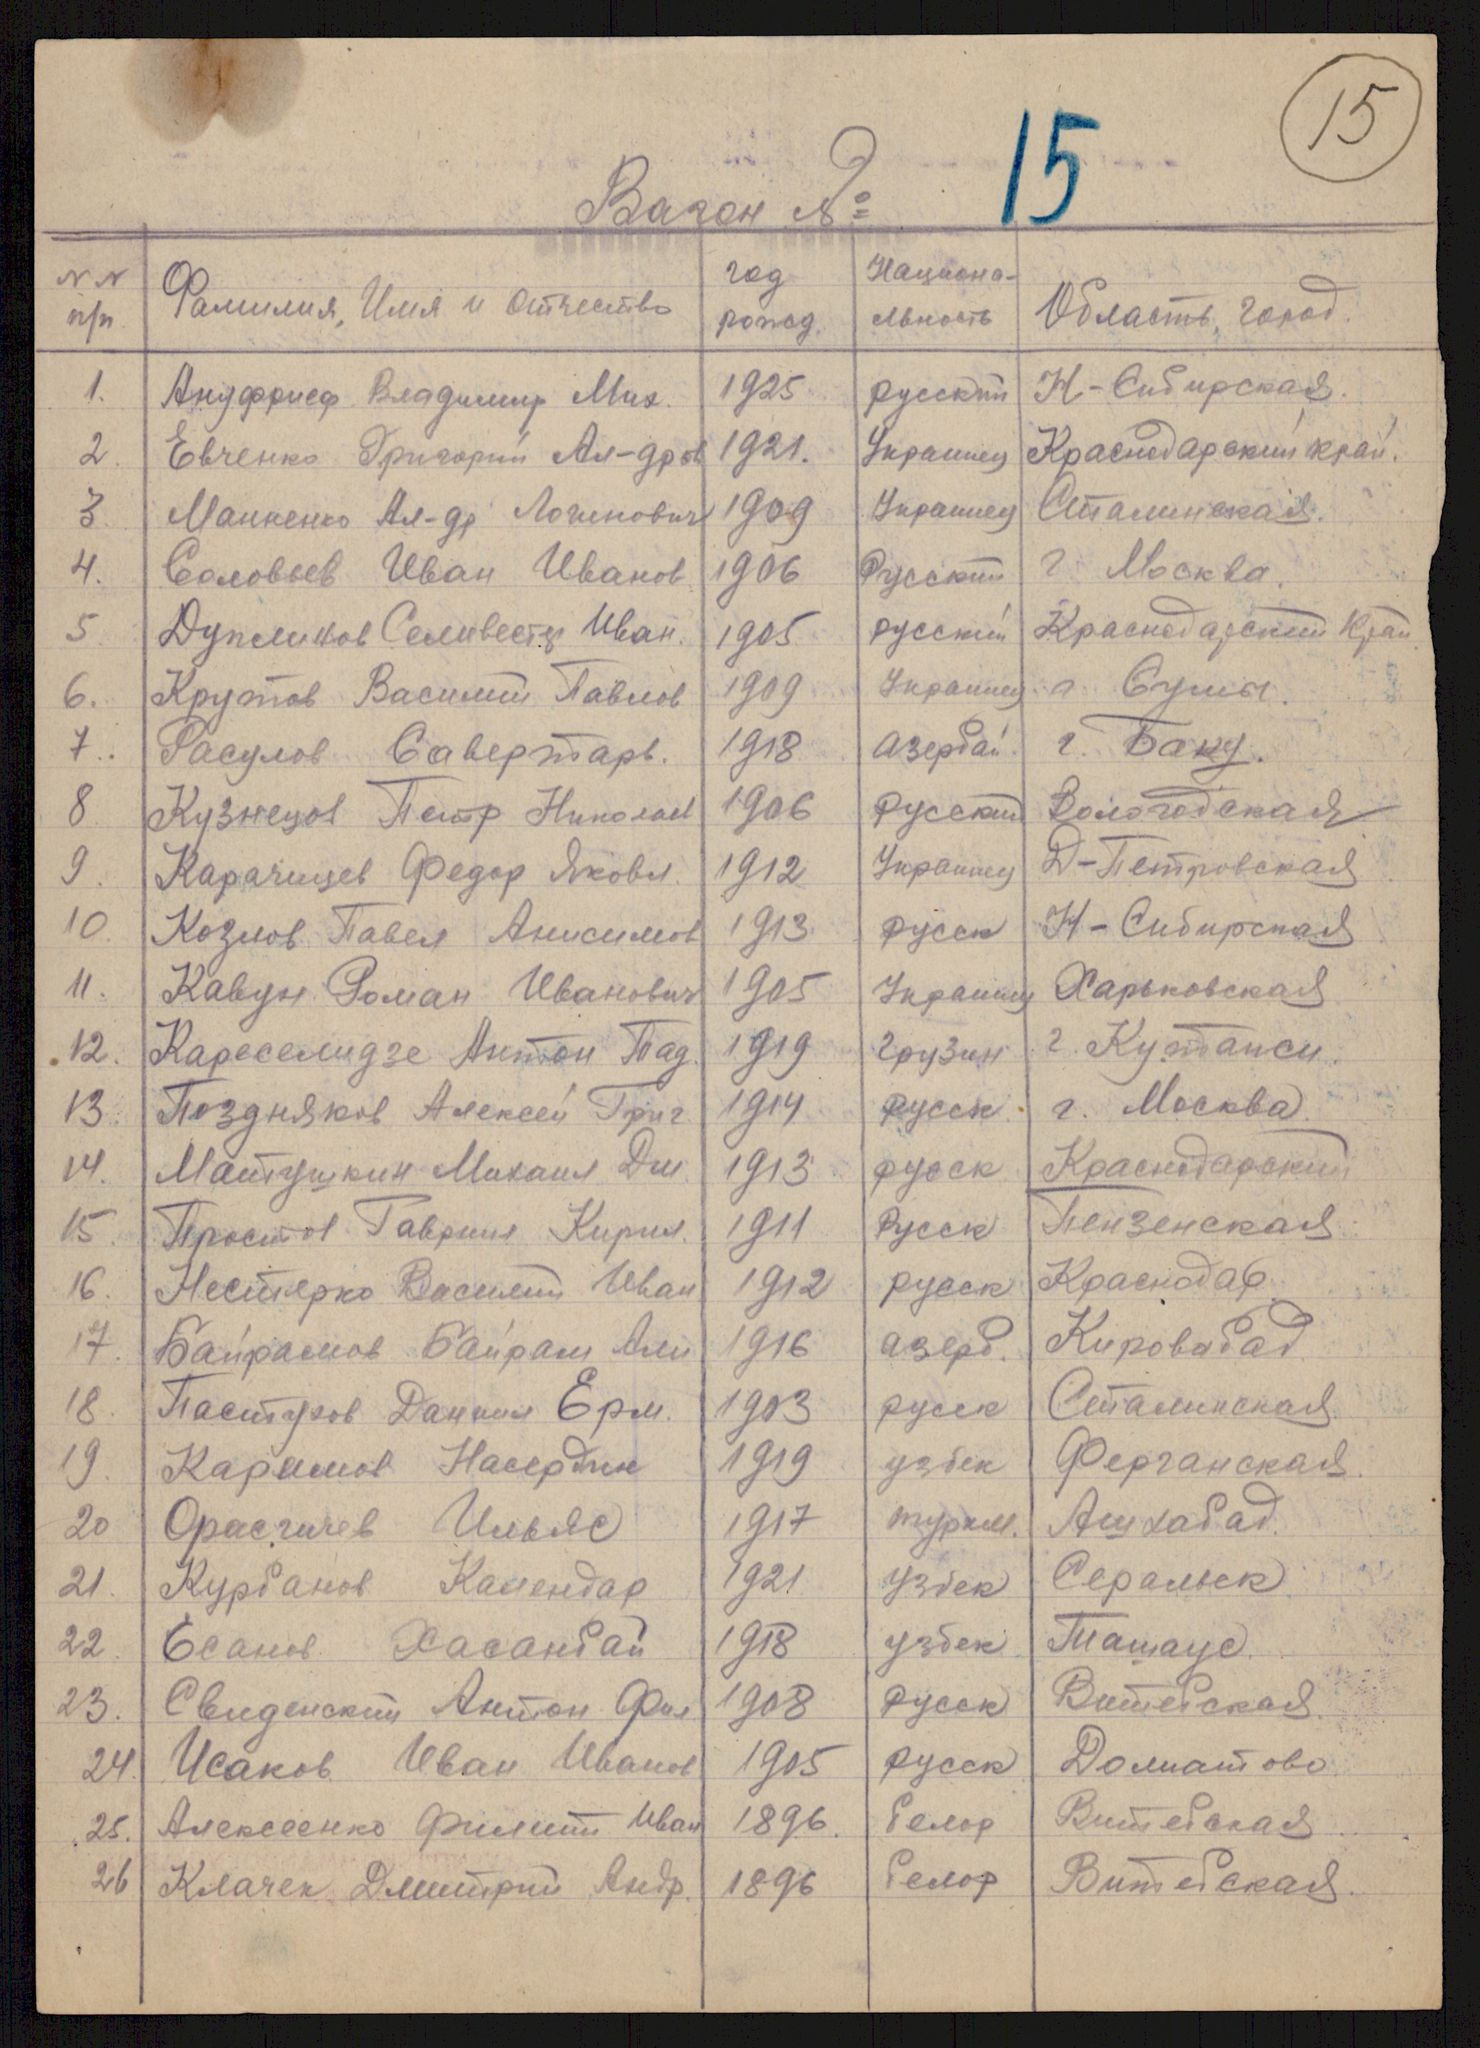 15
Вагон № 15
NN п/п Фамилия, Имя и Отчество год рожд. Национальность Область, город.
1. Ануфриеф Владимир Мих. 1925 русский Н-Сибирская.
2. Евченко Григорий Ал-дров 1921. Украинец Краснодарский край.
3. Манкенко Ал-др Логинович 1909 Украинец Сталинская.
4. Соловьев Иван Иванов 1906 Русский г Москва.
5 Дупликов Селивестр Иван. 1905 русский Краснодарский Край
6. Крутов Василий Павлов 1909 Украинец г. Сумы.
7. Расулов 1918 азербай. г. Баку.
8 Кузнецов Петр Николаев 1906 русский Вологодская
9. Карачицев Федор Яковл. 1912 Украинец Д-Петровская
10. Козлов Павел Анисимов 1913 русск Н-Сибирская
11. Кавун Роман Иванович 1905 Украинец Харьковская
12. Кареселидзе Антон Пад. 1919 грузин г. Кутаиси.
13. Поздняков Алексей Григ 1914 русск. г. Москва
14. Матушкин Михаил Дм. 1913 русск Краснодарский
15. Простов Гавриил Кирил. 1911 Русск Пензенская
16. Нестерко Василий Иван 1912 русск Краснодар
17. Байрамов Байрам Али 1916 азерб. Кировабад
18. Пастухов Даниил Ерм. 1903 русск Сталинская
19. Каримов Насердин 1919 узбек Ферганская.
20 Илья́с 1917 туркм. Ашхабад.
21. Курбанов Календар 1921 Узбек
22. Есанов Хасанбай 1918 узбек Ташауз.
23. Свиденский Антон Фил 1908 русск Витебская.
24. Исаков Иван Иванов 1905 русск Долматово
25. Алексеенко Филипп Иван 1896. белор Витебская
26 Клачек Дмитрий Андр. 1896 белор Витебская.